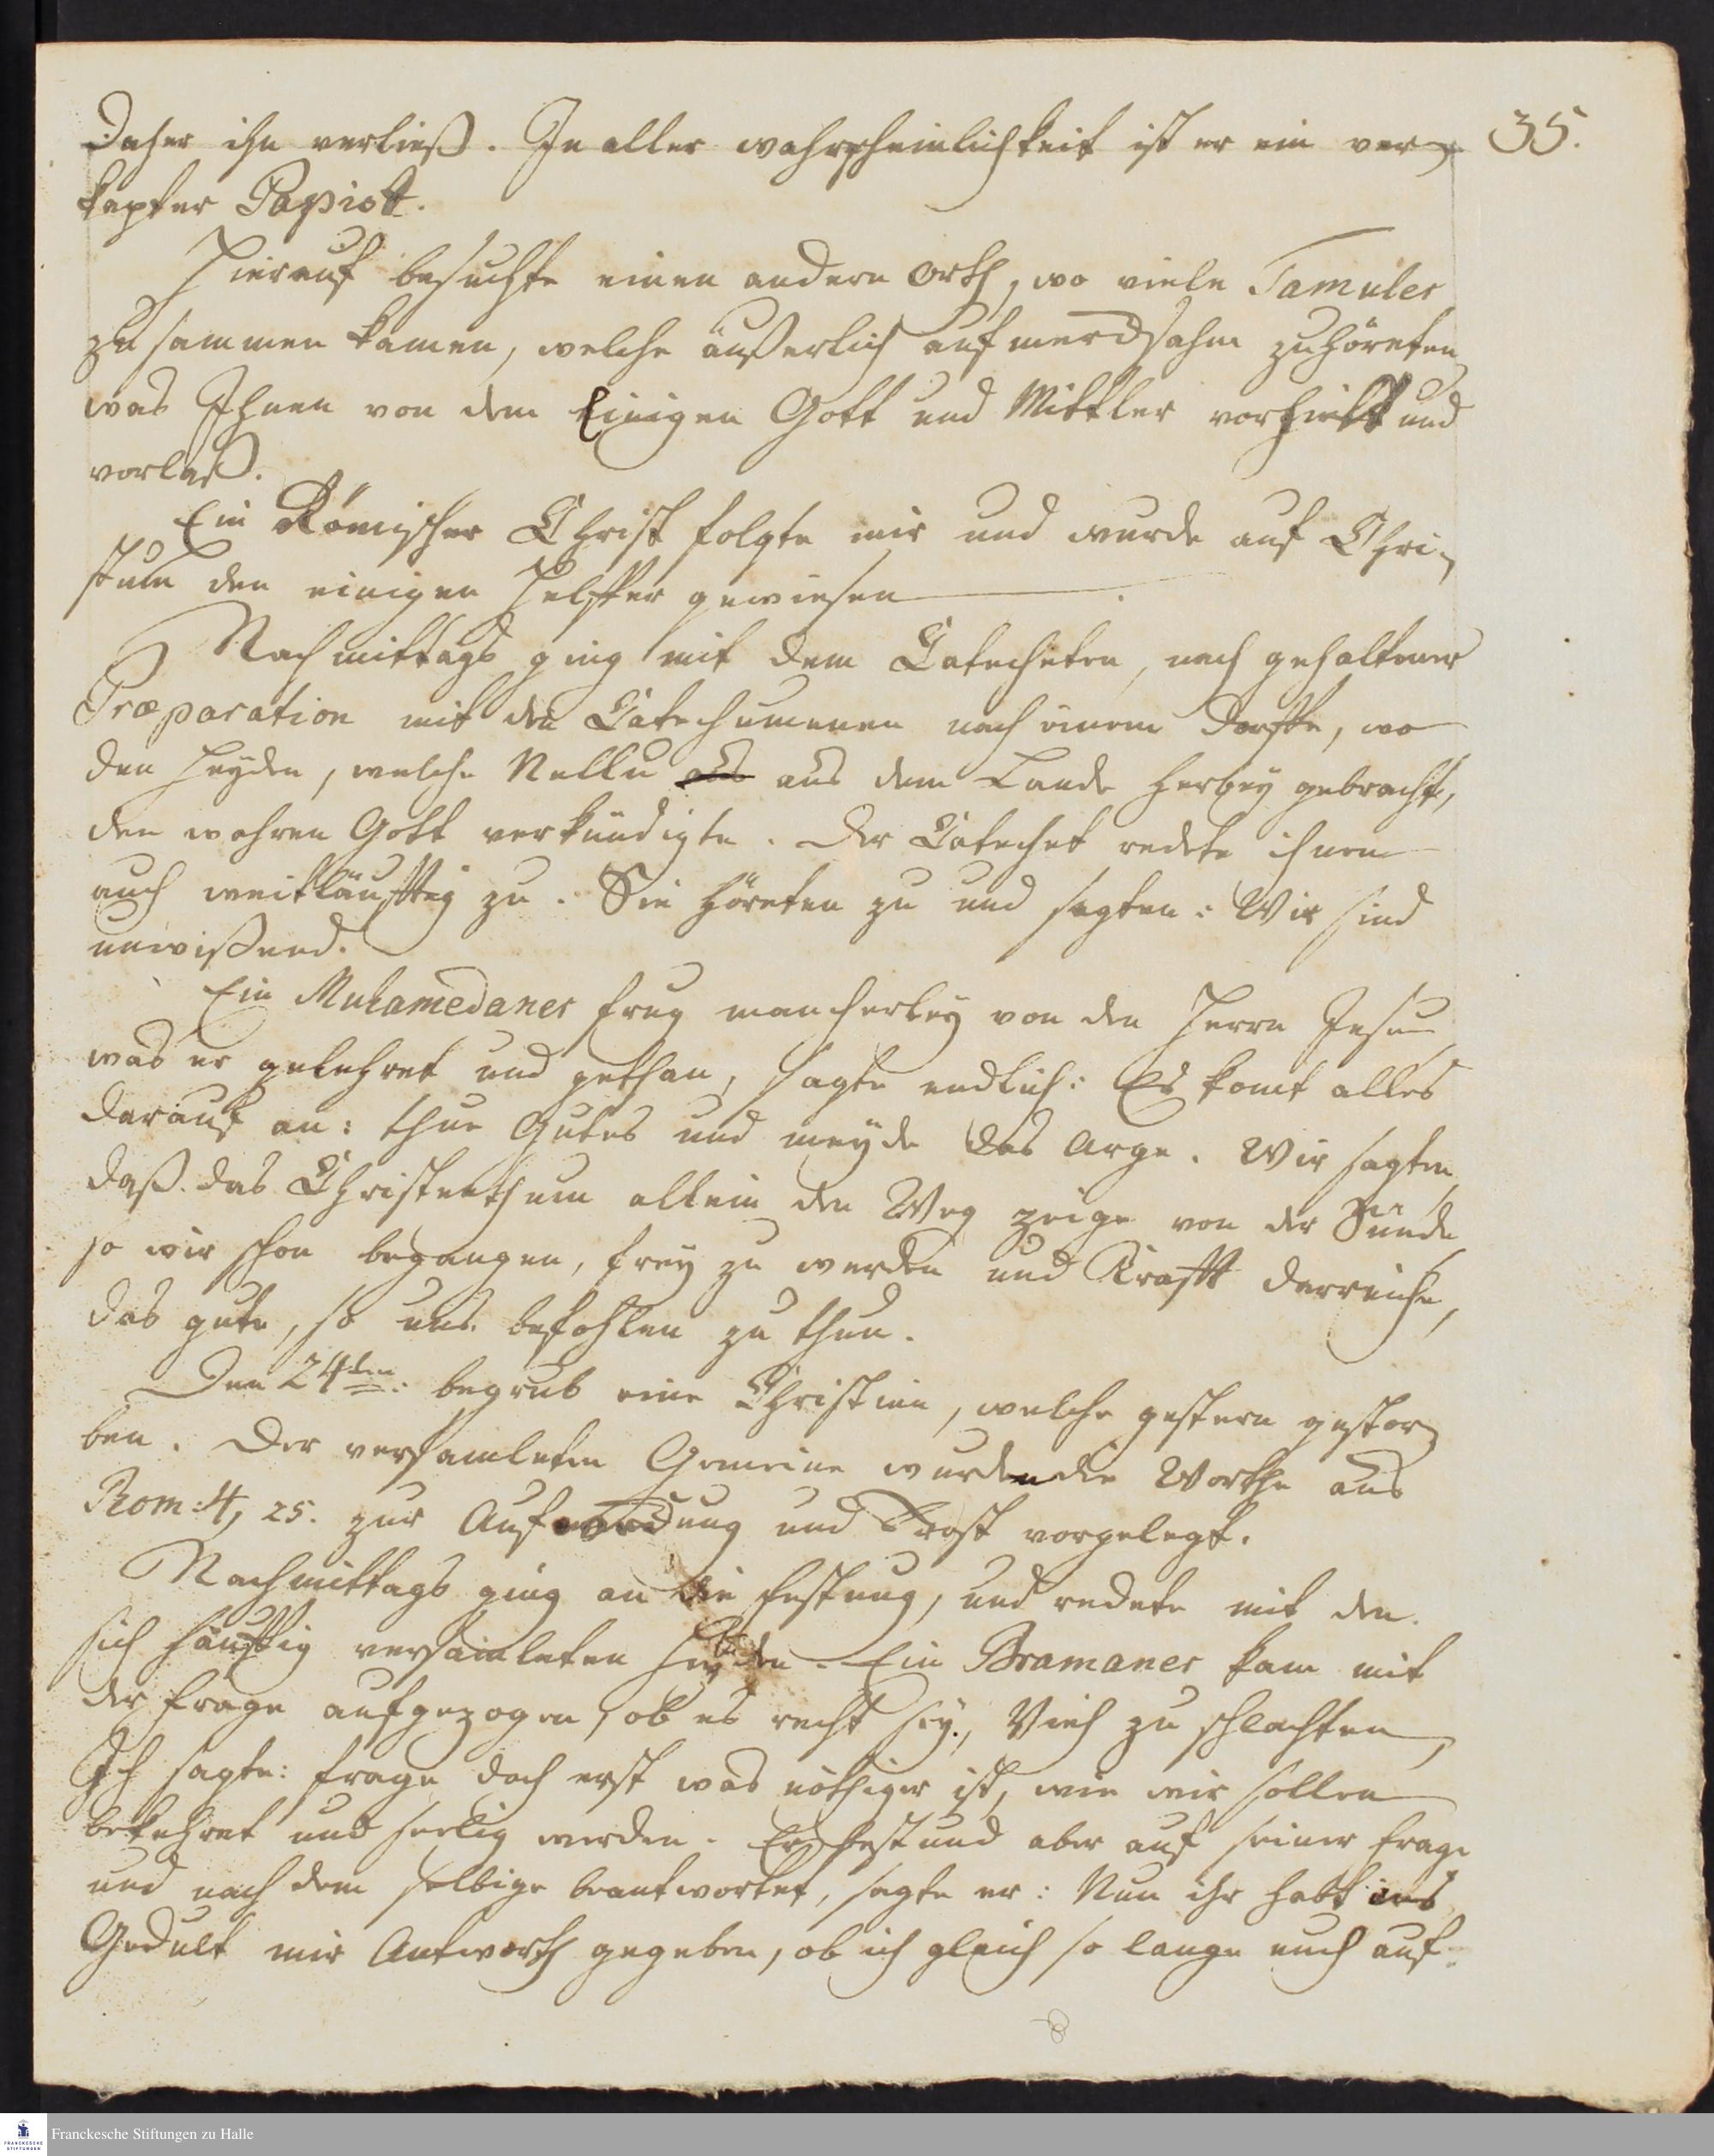 35.
Daher ihn verließ. In aller wahrscheinlichkeit ist er ein ver-
kapter Papist.
Hierauf besuchte einen andern Orth, wo viele Tamuler
zusammen kamen, welche äußerlich aufmercksahm zuhöreten,
was Ihnen von dem Einigen Gott und Mittler vorhielt und
vorlaß.
Ein Römischer Christ folgte mir und wurde auf Chri-
stum den einigen Helffer gewiesen.
Nachmittags ging mit dem Catecheten, nach gehaltener
Præparation mit den Catechumenen nach einem Dorffe, wo
den Heyden, welche Nellu aus aus dem Lande herbey gebracht,
den wahren Gott verkündigte. Der Catechet redete ihnen
auch weitläufftig zu. Sie höreten zu und sagten: Wir sind
unwißend.
Ein Muhamedaner frug mancherley von den Herrn Jesu,
was er gelehret und gethan, sagte endlich: Es komt alles
darauf an: thue Gutes und meyde das Arge. Wir sagten,
daß das Christenthum allein den Weg zeige von der Sünde,
so wir schon begangen, frey zu werden und Krafft darreiche,
das gute, so uns befohlen zu thun.
Den 24ten: begrub eine Christinn, welche gestern gestor-
ben. Der versamleten Gemeine wurden die Worthe aus
Rom: 4, 25. zur Aufweckung und Trost vorgelegt.
Nachmittags ging an die Festung, und redete mit den
sich häufftig versamleten Heyden. Ein Bramaner kam mit
der Frage aufgezogen, ob es recht sey, Vieh zu schlachten,
Ich sagte: frage doch erst was nöthiger ist, wie wir sollen
bekehret und seelig werden. Er bestund aber auf seiner Frage
und nach dem selbige beantwortet, sagte er: Nun ihr habt mit
Gedult mir Antworth gegeben, ob ich gleich so lange euch auf-
Franckesche Stiftungen zu Halle